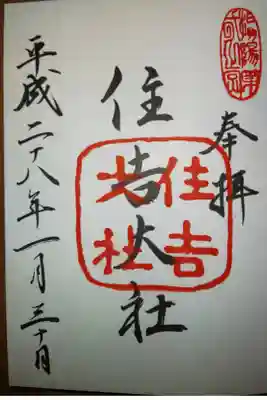 奉拝
住吉大社
住吉
大社
平成二十八年一月三十日